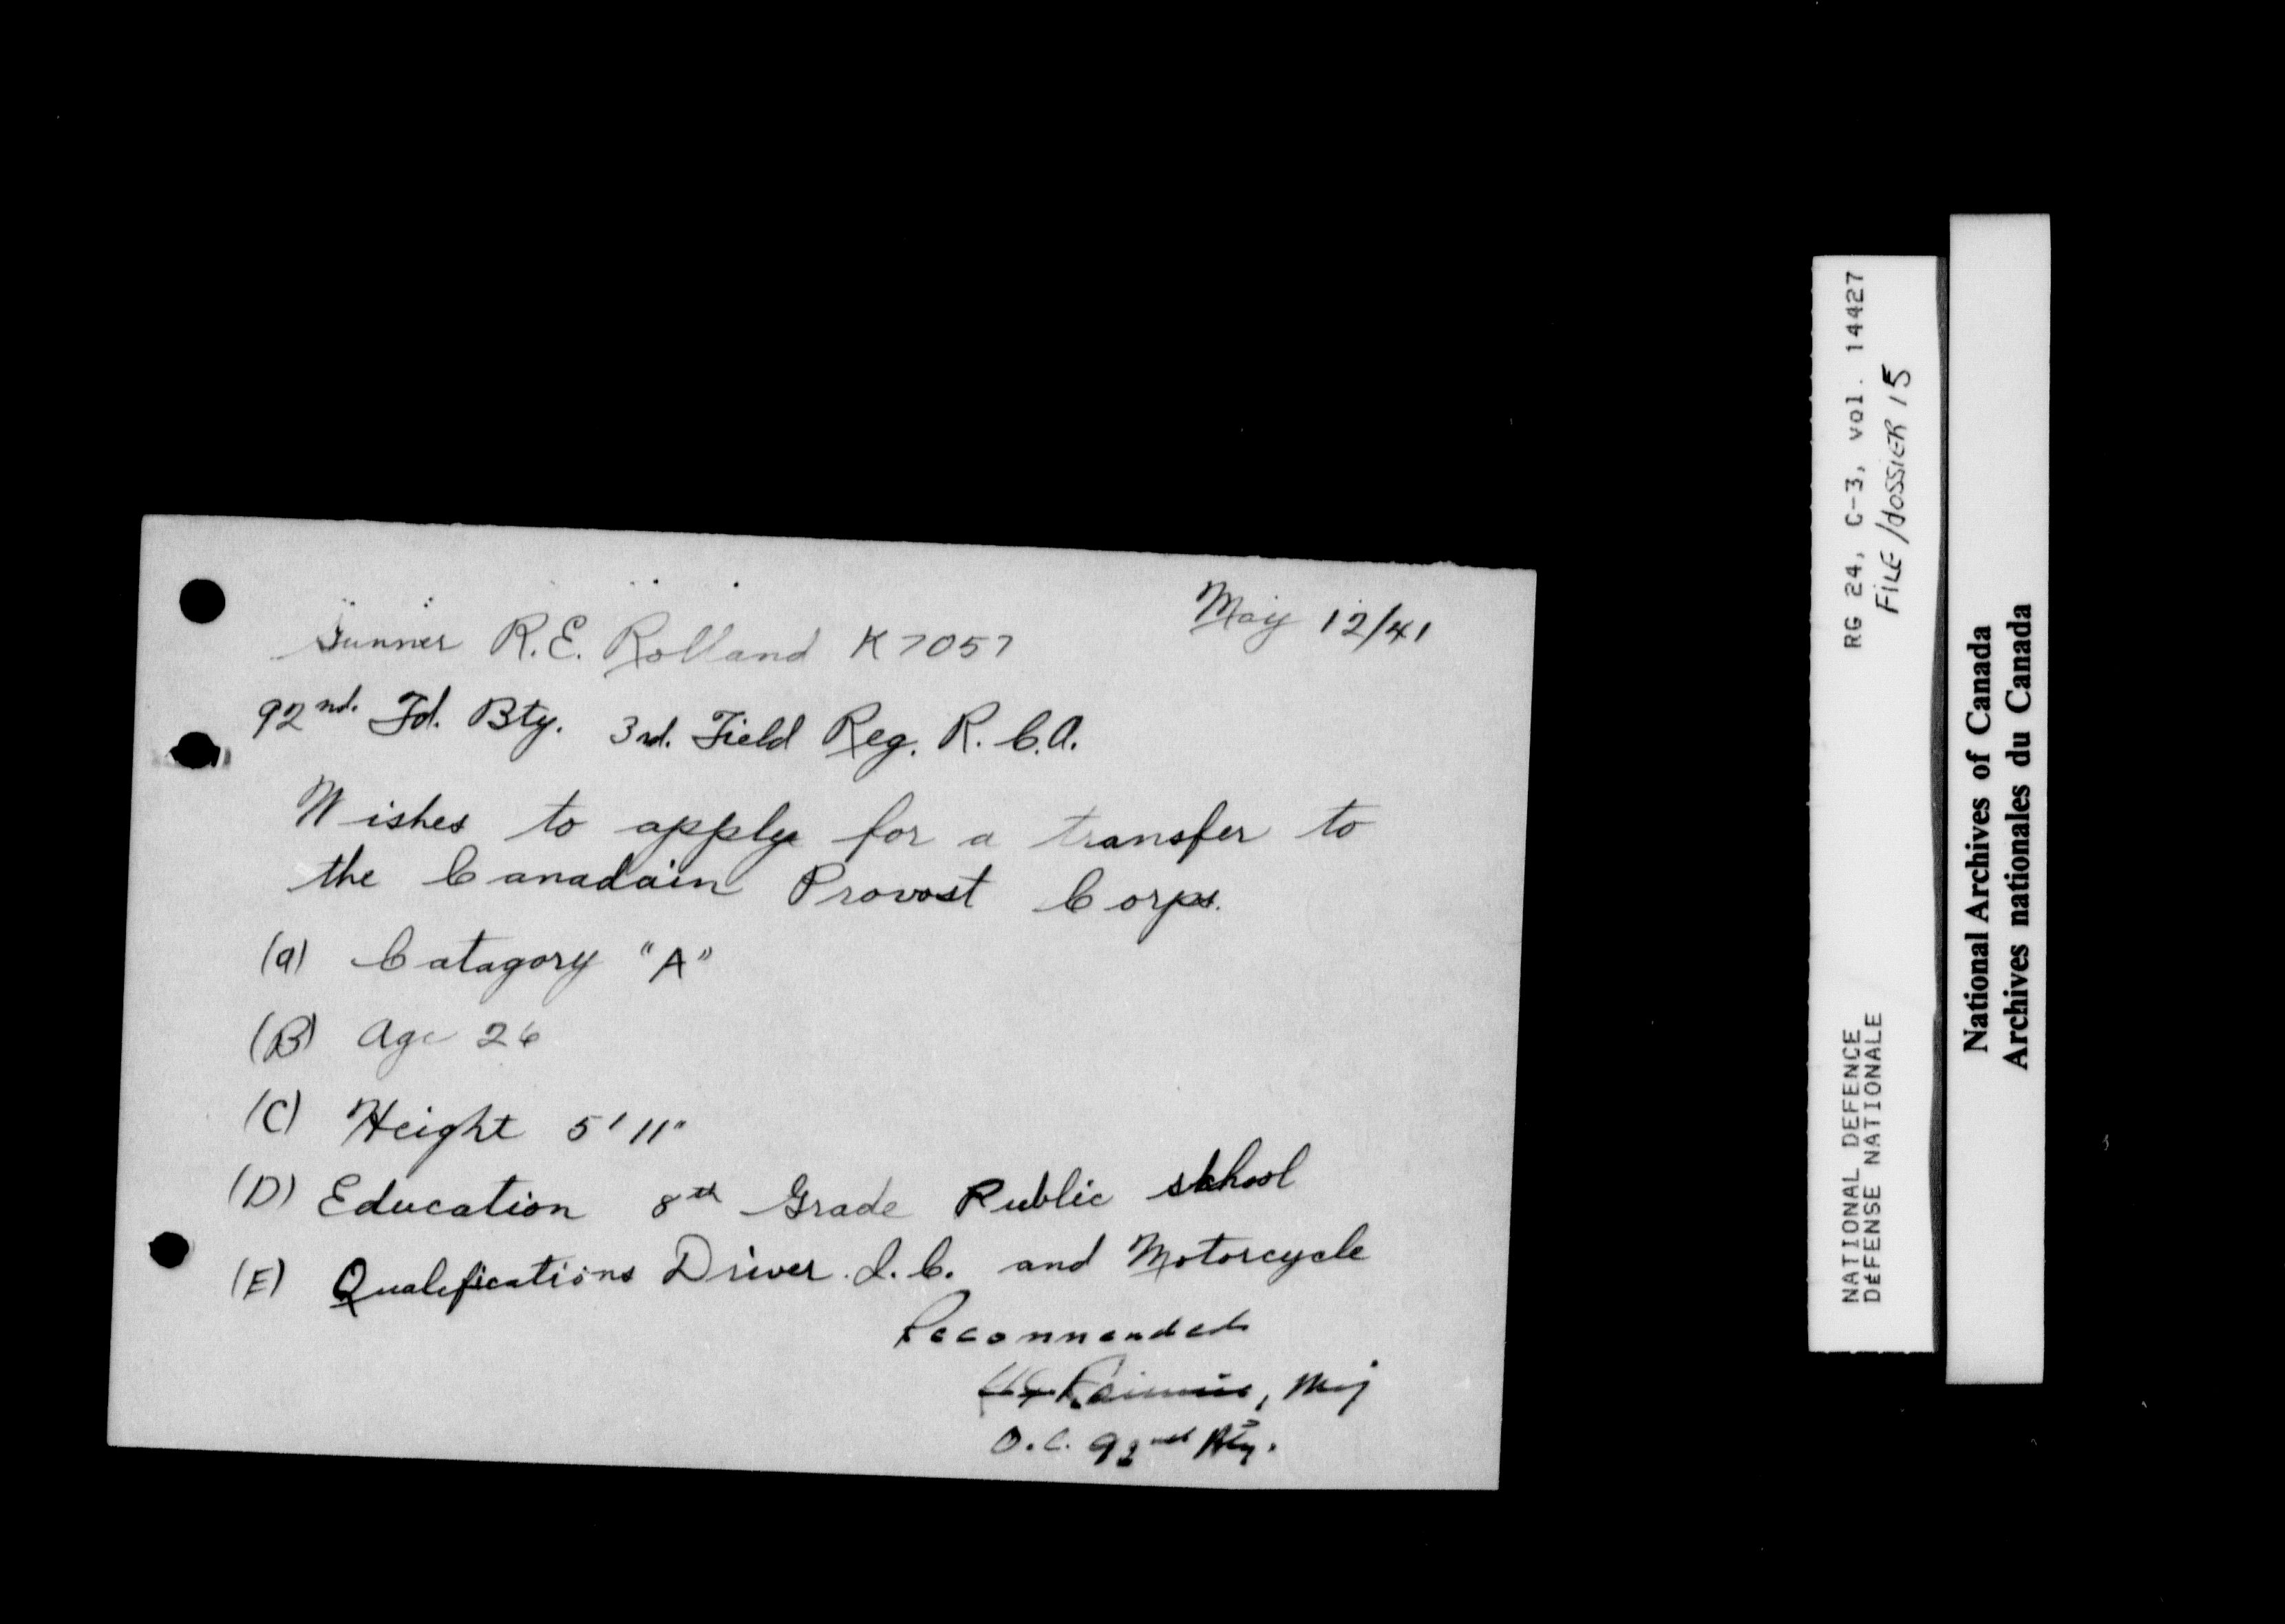 May 12/41
Gunner R.E. Rolland K7057
92nd. Fd. Bty. 3rd. Field Reg. R.C.A.
Wishes to apply for a transfer to
the Canadain Provost Corps.
(a) Catagory "A"
(B) Age 26
(C) Height 5'11"
(D) Education 8th Grade Public school
(E) Qualifications Driver I.C. and Motorcycle
Recommended
, Maj
O.C. 92nd Bty.
RG 24, C-3, vol. 14427
FILE/dOSSIER 15
NATIONAL DEFENCE
DÉFENSE NATIONALE
National Archives of Canada
Archives nationales du Canada